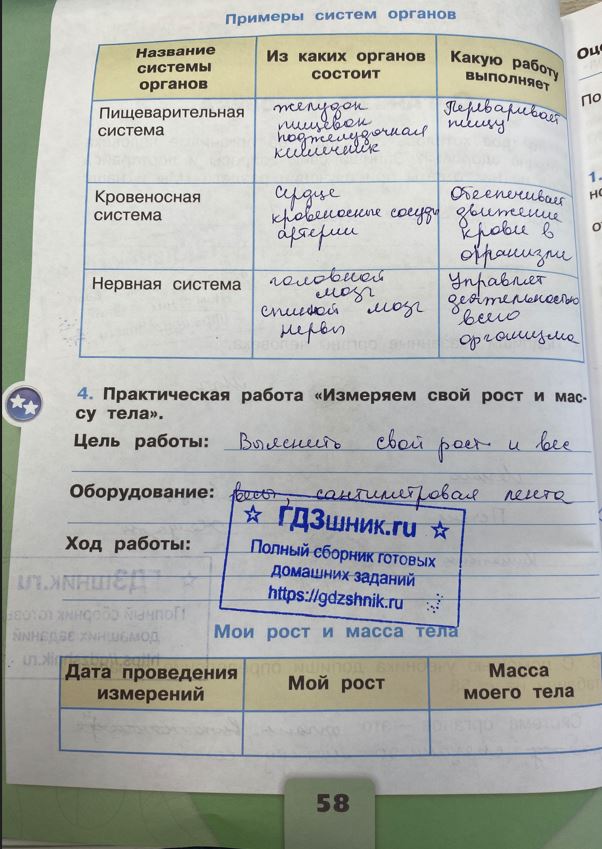 Примеры систем органов
Название системы органов
Из каких органов состоит
Какую работу выполняет
Пищеварительная система
желудок
пищевон
поджелудочная
кишечник
Переваривает
пищу
Кровеносная система
сердце
кровеносные сосуды
артерии
Обеспечивает
движение
крови в
организм
Нервная система
головной
мозг
спиной мозг
нервы
Управляет
деятельностью
всего
организма
4. Практическая работа «Измеряем свой рост и мас-
су тела».
Цель работы: Выяснить свой рост и вес
Оборудование: весы, сантиметровая лента
☆ ГДЗшник.ru ☆
Ход работы:
Полный сборник готовых
домашних заданий
https://gdzshnik.ru
Мои рост и масса тела
Дата проведения измерений
Мой рост
Масса моего тела
58